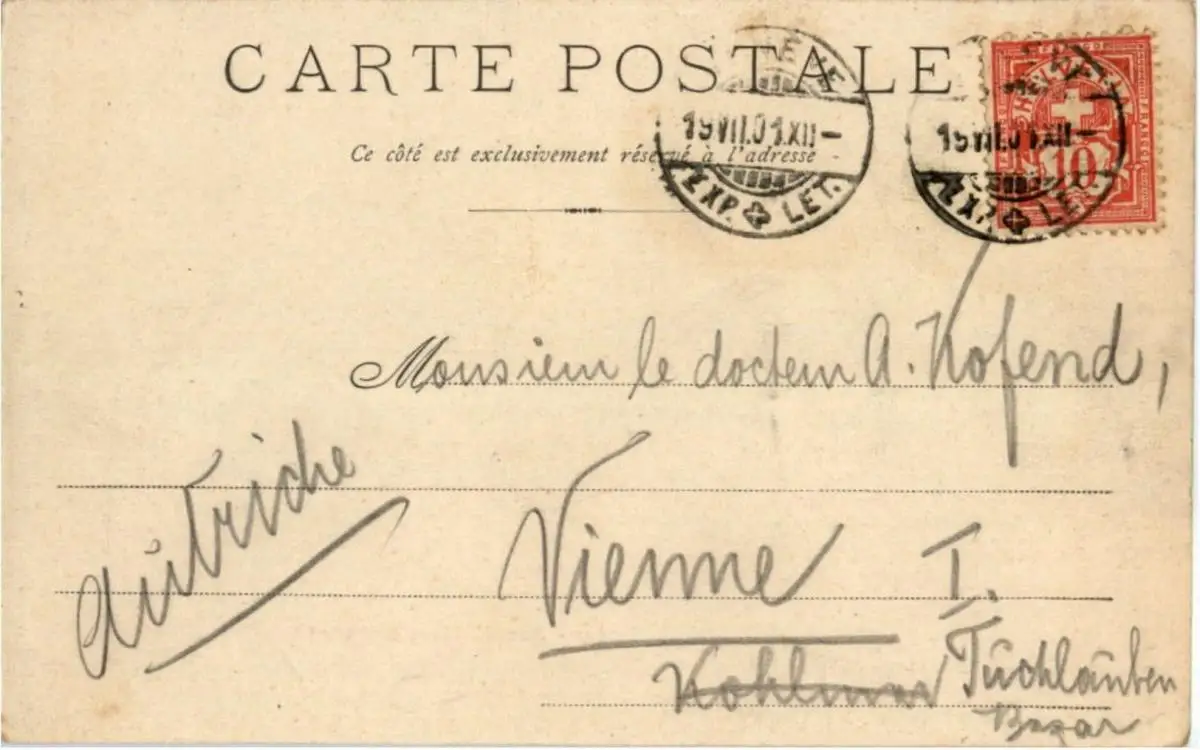 CARTE POSTALE
Ce côté est exclusivement réservé à l'adresse
19 VII.01.XII-
EXP. LET.
19 VII.01.XII-
EXP. LET.
10
Monsieur le docteur A. Kofend,
Autriche
Vienne I.
Tuchlauben
Bazar